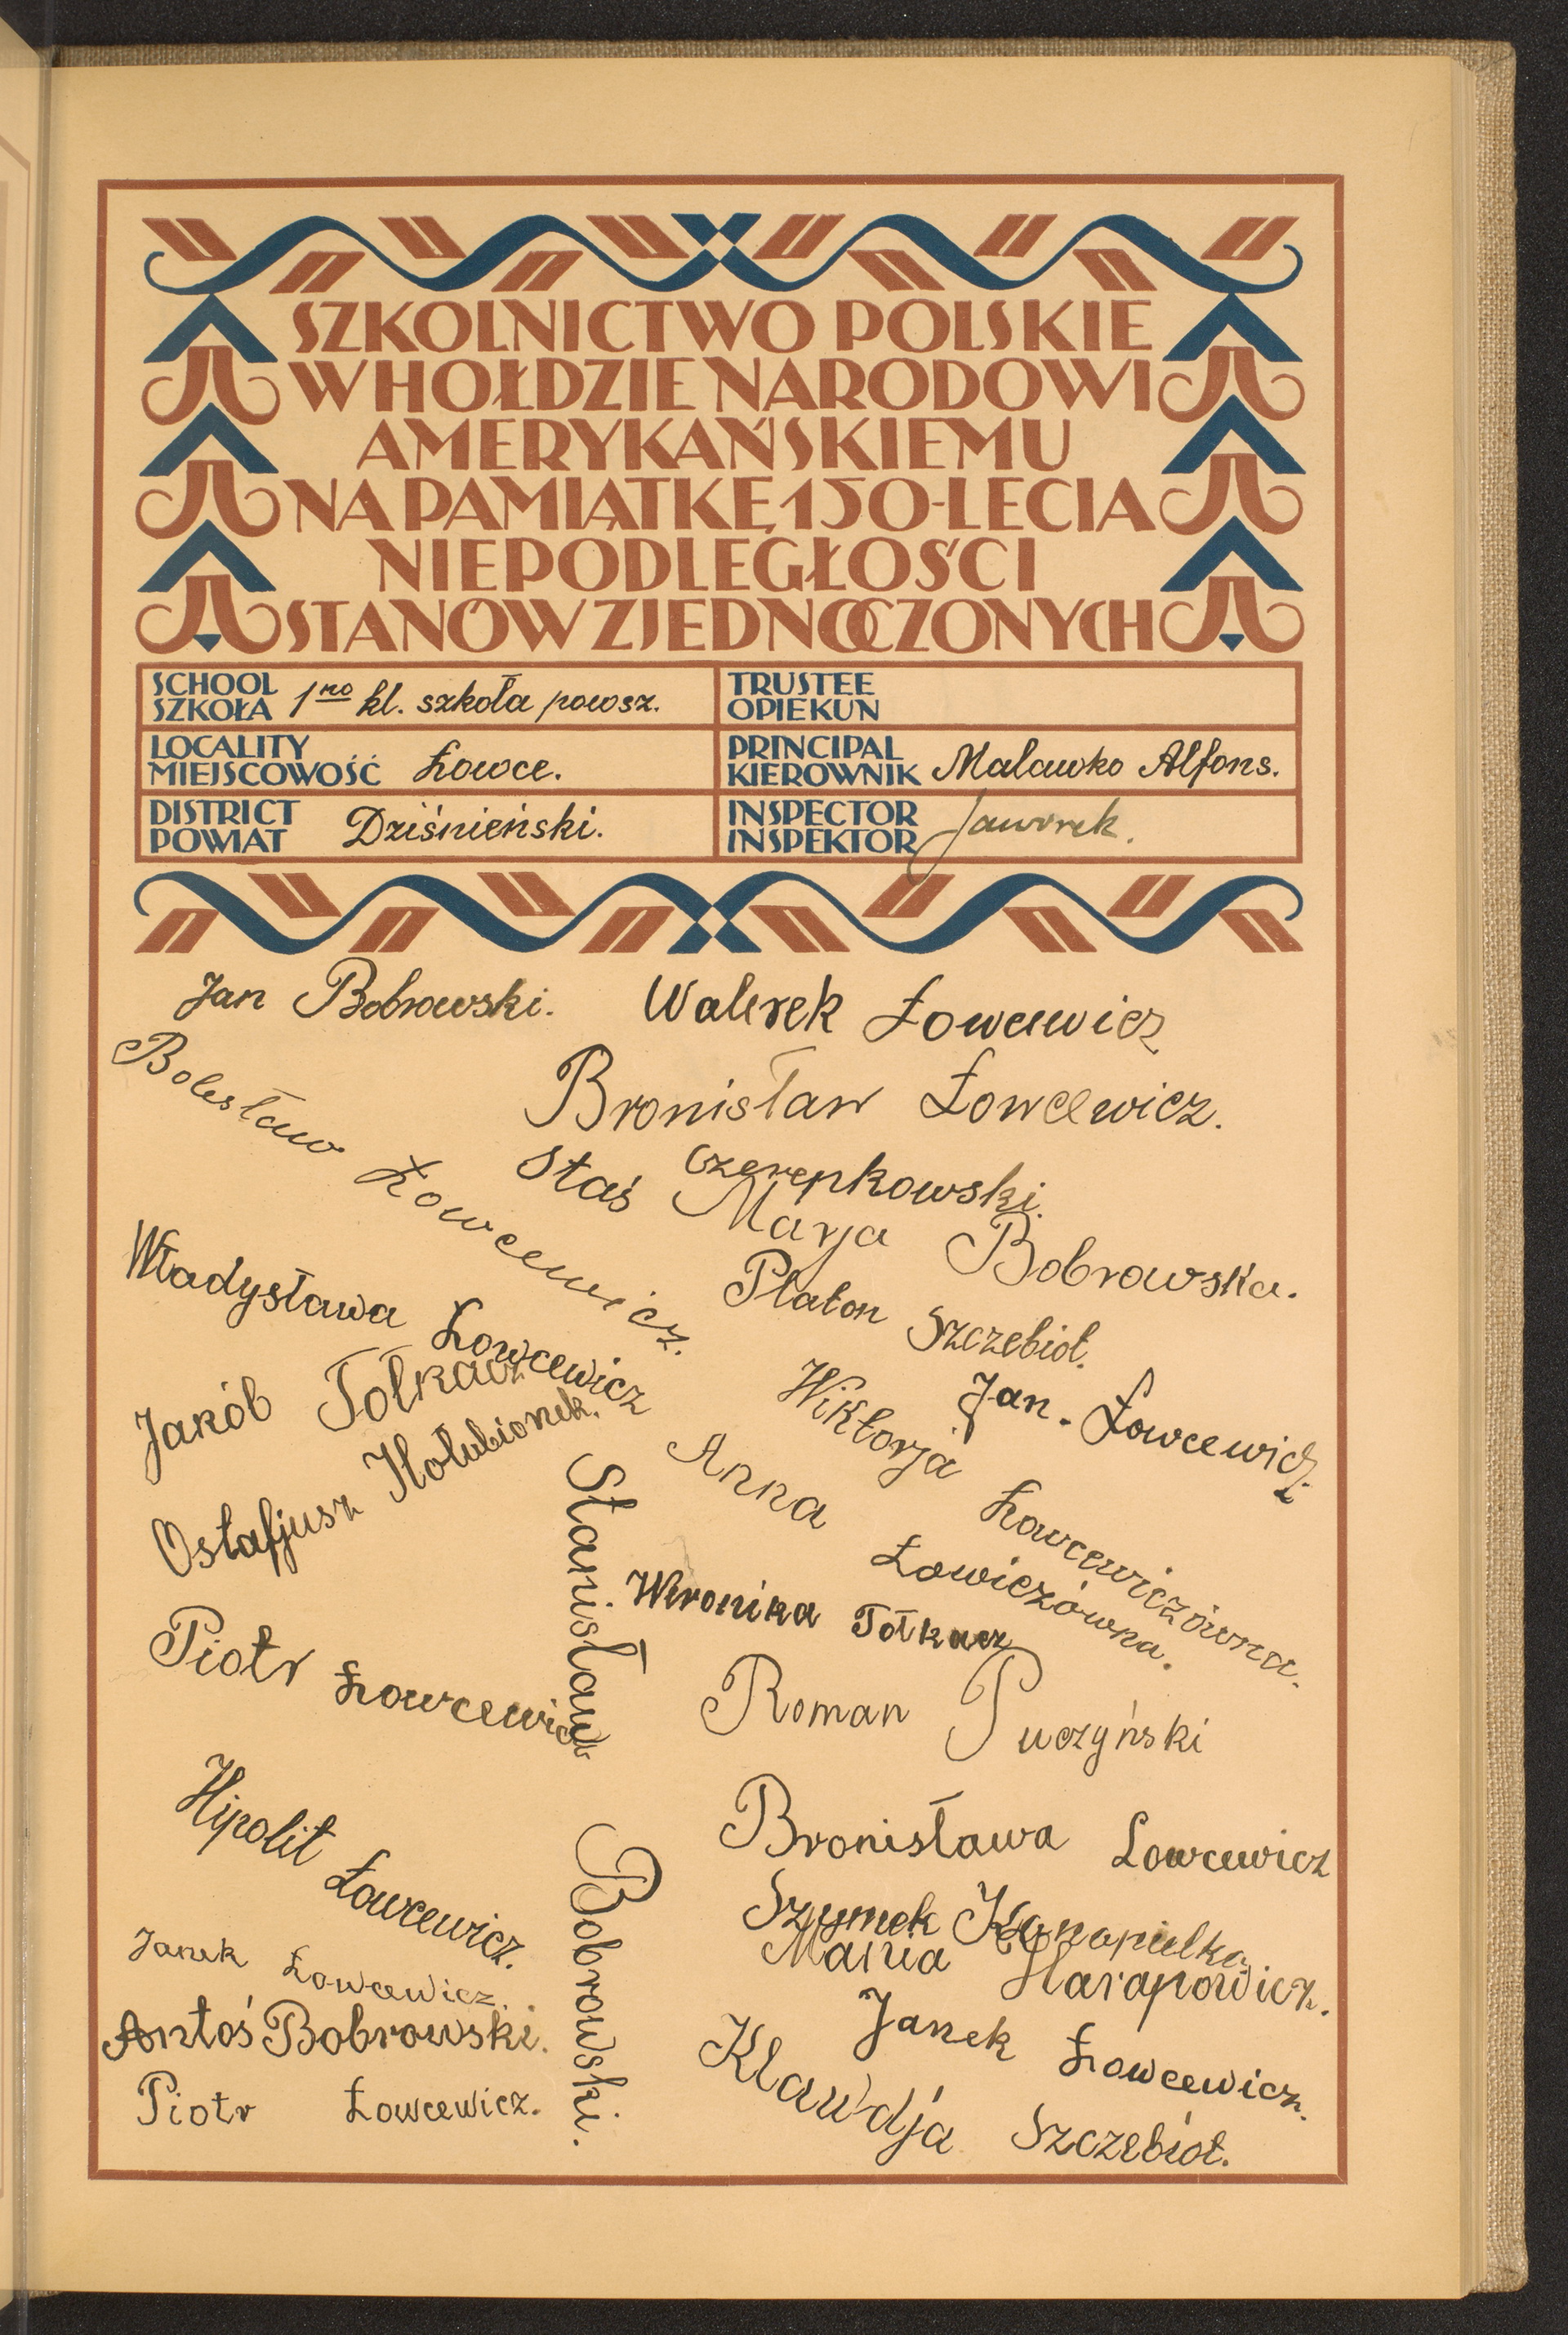 SZKOLNICTWO POLSKIE
W HOŁDZIE NARODOWI
AMERYKAŃSKIEMU
NA PAMIĄTKĘ 150-LECIA
NIEPODLEGŁOŚCI
STANÓW ZJEDNOCZONYCH
SCHOOL
SZKOŁA 1no kl. szkoła powsz.
TRUSTEE
OPIEKUN
LOCALITY
MIEJSCOWOŚĆ Łowce.
PRINCIPAL
KIEROWNIK Malawko Alfons.
DISTRICT
POWIAT Dziśnieński.
INSPECTOR
INSPEKTOR Jaworek.
Jan Bobrowski.
Walerek Łowcewicz
Bolesław Łowcewicz.
Bronisław Łowcewicz.
Staś Czerepkowski.
Marja Bobrowska.
Władysława Łowcewicz
Platon Szczebiot.
Jakób Tołkacz
Jan. Łowcewicz.
Wiktorja Łowcewiczówna.
Ostafjusz Hołubionek.
Anna Łowiczówna.
Stanisław Bobrowski.
Weronika Tołkacz
Piotr Łowcewicz
Roman Puczyński
Hipolit Łowcewicz.
Bronisława Lowcewicz
Szymek Konopielka
Mania Harapowicz.
Janek Łowcewicz.
Antoś Bobrowski.
Janek Łowcewicz.
Piotr Łowcewicz.
Klawdja Szczebiot.